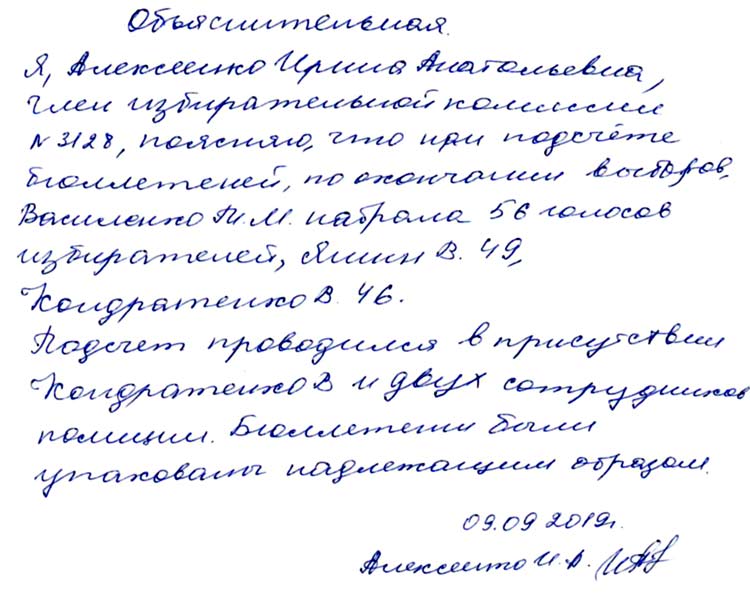 Объяснительная.
Я, Алексеенко Ирина Анатольевна,
член избирательной комиссии
№ 3128, поясняю, что при подсчёте
бюллетеней, по окончании выборов,
Василенко Т.М. набрала 56 голосов
избирателей, Яшин В. 49,
Кондратенко В. 46.
Подсчет проводился в присутствии
Кондратенко В и двух сотрудников
полиции. Бюллетени были
упакованы надлежащим образом.
09.09 2019г.
Алексеенко И.А.